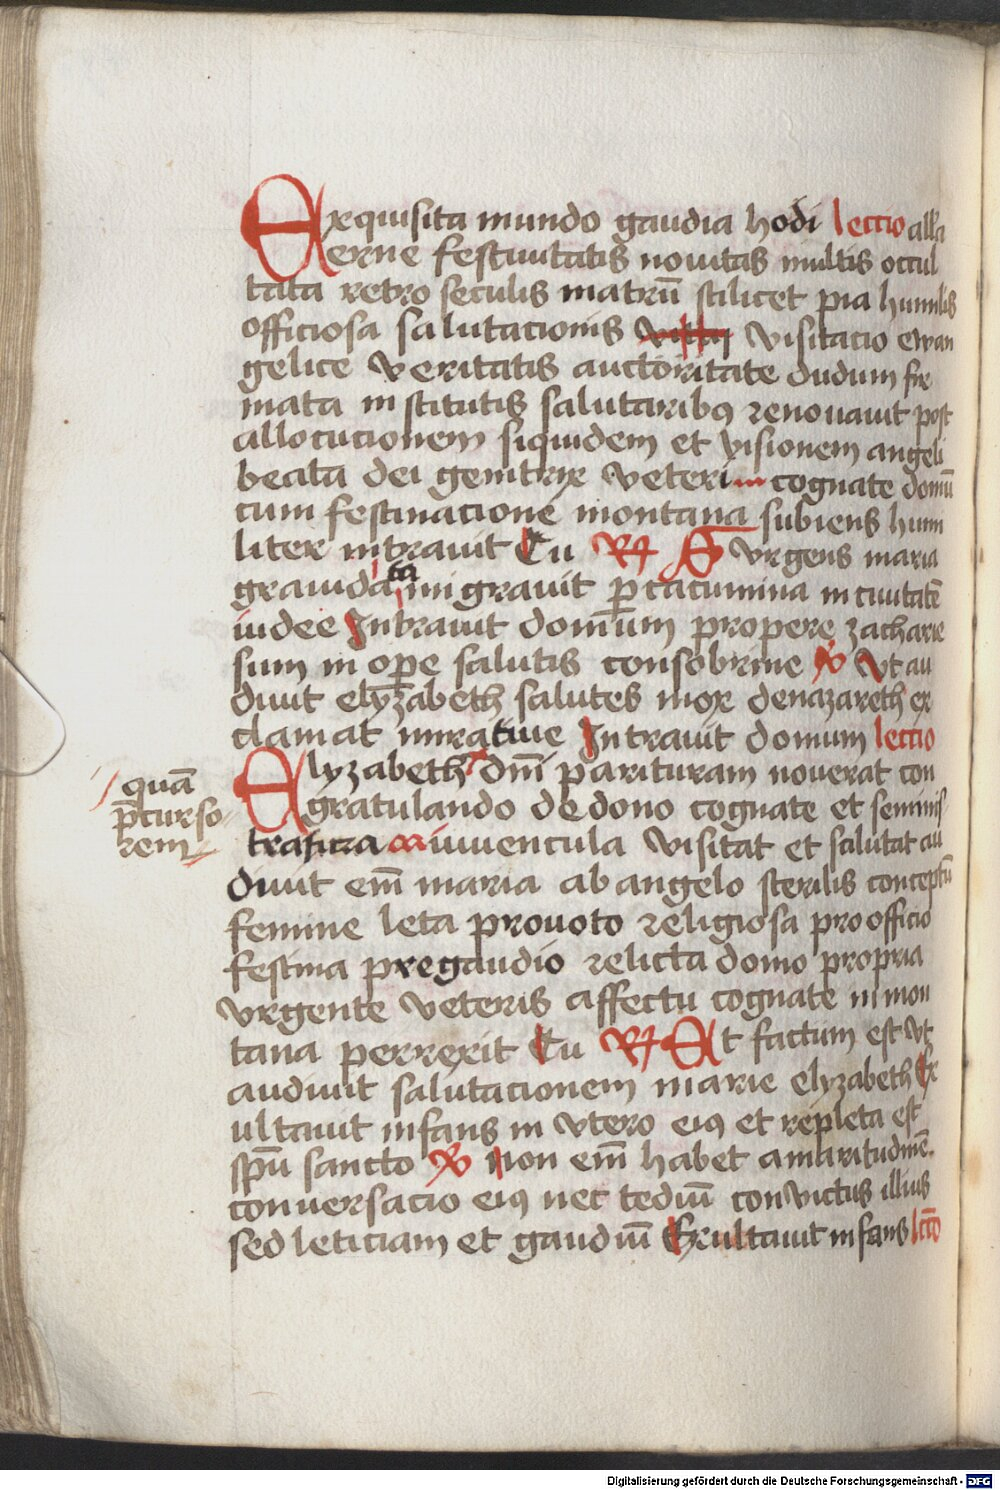 Exquisita mundo gaudia hodi lectio alla
erne festiuitatis nouitas multis occul
tata retro seculis matrū scilicet pia humilis
officiosa salutacionis visitacio ewan
gelice veritatis auctoritate dudum fir
mata institutis salutaribꝰ renouauit post
allocucionem siquidem et visionem angeli
beata dei genitrix veteri cognate domū
cum festinacione montana subiens humi
liter intrauit Tu R Surgens maria
grauida migrauit ꝑ cacumina in ciuitatē
iudee Intrauit domum propere zacharie
sum in oꝑe salutis consobrine V Vt au
diuit elyzabeth salutes mox denazareth ex
clamat miratiue Intrauit domum lectio
Elyzabeth dn̄i parituram nouerat con
quā
p̄curso
rem
gratulando dedono cognate et seminis
iuuencula visitat et salutat au
diuit em̄ maria ab angelo sterilis conceptū
femine leta prouoto religiosa pro officio
festina pregaudio relicta domo propria
vrgente veteris affectu cognate in mon
tana perrexit Tu R Et factum est vt
audiuit salutacionem marie elyzabeth Ex
ultauit infans in vtero eiꝰ et repleta est
sp̄u sancto V Non em̄ habet amaritudinē
conuersacio eiꝰ nec tediū conuictus illius
sed leticiam et gaudiū Exultauit infans lcō
Digitalisierung gefördert durch die Deutsche Forschungsgemeinschaft - DFG